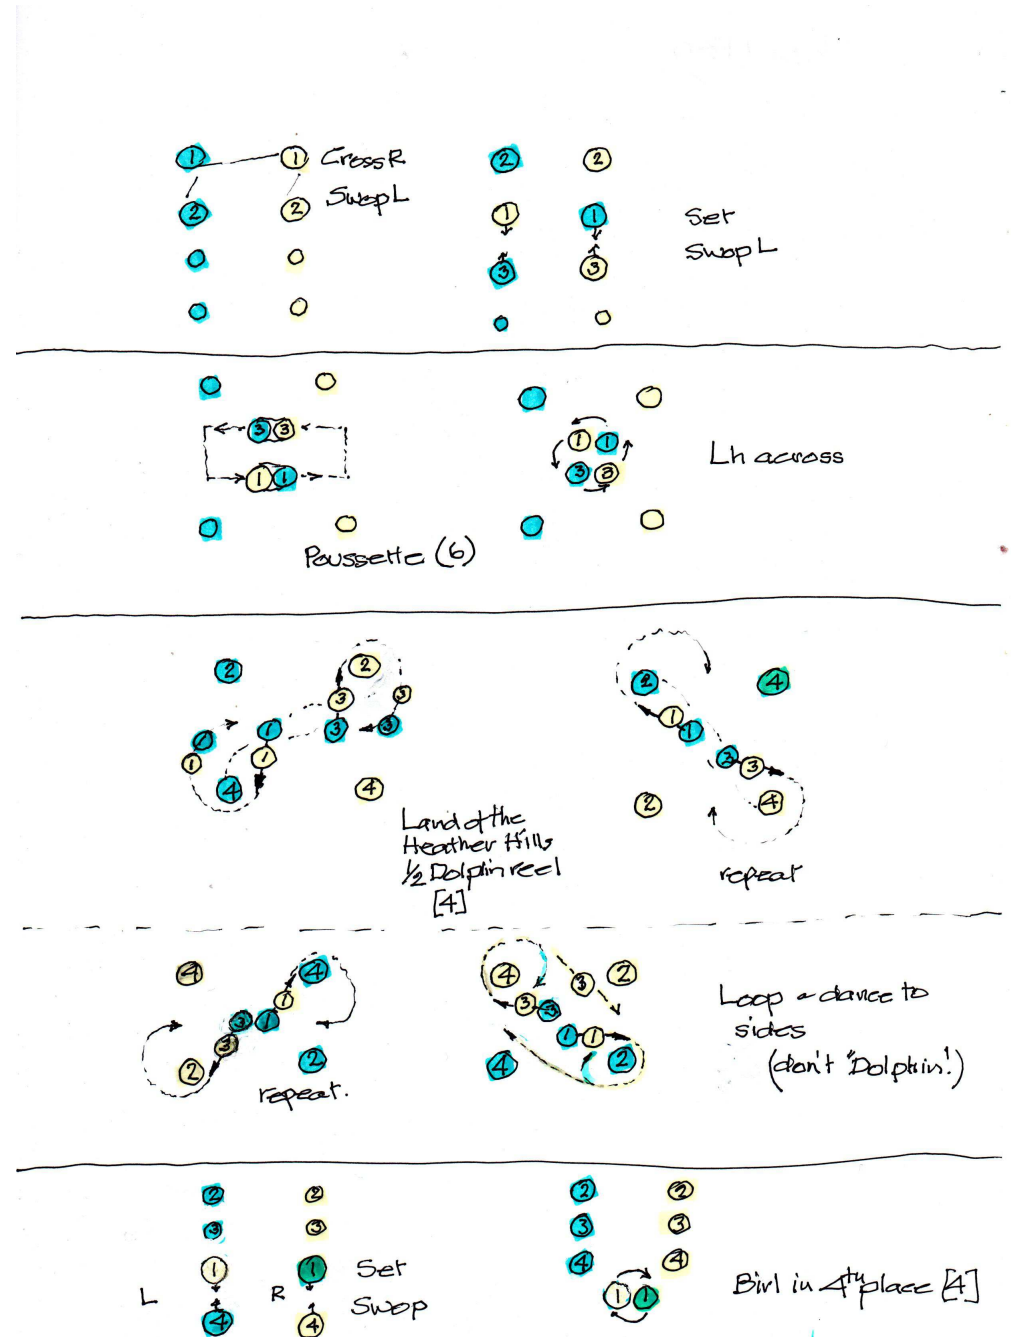 1 1 Cross R
2 2 Swop L
2 2
1 1 Set
3 3 Swop L
3 3
1 1
Poussette (6)
1 1
3 3
Lh across
2 2
3 3
1 3
1 1 3
4 4
Land of the
Heather Hills
1/2 Dolphin reel
[4]
2 4
1 1
3 3
2 4
repeat
4 4
1
3 1
3
2 2
repeat.
4 3 2
3 3
1 1
4 2
Loop & dance to
sides
(don't "Dolphin"!)
2 2
3 3
1 1 Set
L R Swop
4 4
2 2
3 3
4 4
1 1
Birl in 4th place [4]